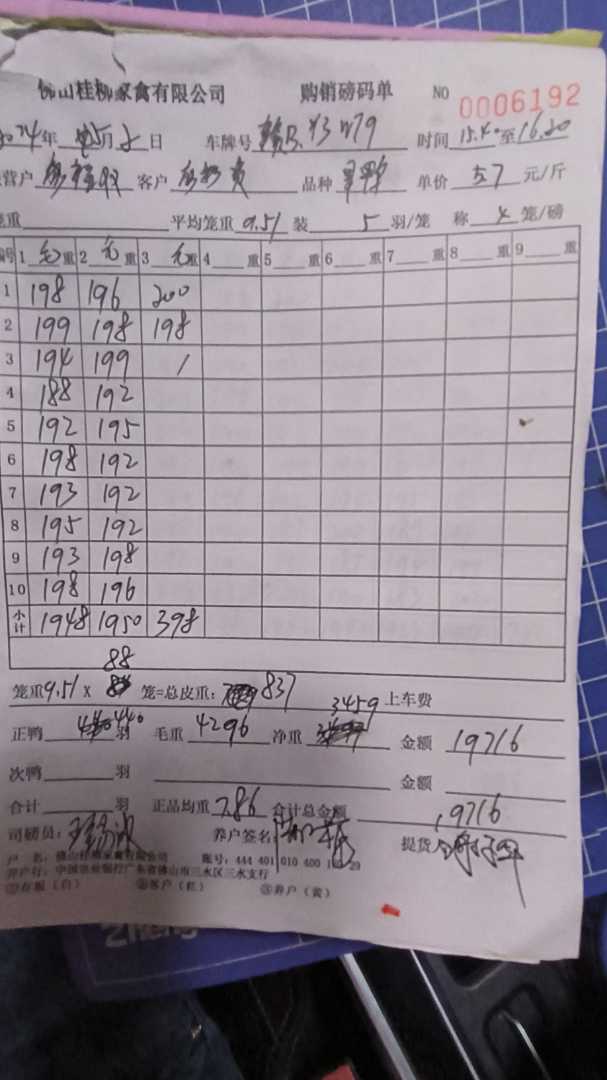 佛山桂柳家禽有限公司 购销磅码单 NO 0006192
2024年 5月2日 车牌号 时间 15.40至16.20
营户 客户 品种 单价 5.7 元/斤
笼重 平均笼重 9.51 装 5 羽/笼 称 4 笼/磅
编号 1 毛重 2 毛重 3 毛重 4 重 5 重 6 重 7 重 8 重 9 重
1 198 196 200
2 199 198 198
3 194 199 /
4 188 192
5 192 195
6 198 192
7 193 192
8 195 192
9 193 198
10 198 196
小计 1948 1950 398
88
笼重9.51 x 笼=总皮重: 837 3459 上车费
正鸭 440 羽 毛重 4296 净重 金额 19716
次鸭 羽 金额
合计 羽 正品均重 7.86 合计总金额 19716
司磅员: 养户签名 提货
户 名: 佛山桂柳家禽有限公司 账号: 444 401 010 400 1 29
开户行: 中国农业银行广东省佛山市三水区三水支行
①存根(白) ②客户(红) ③养户(黄)